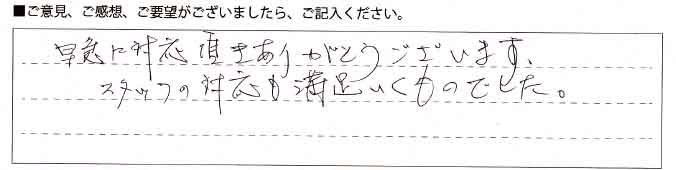 ■ご意見、ご感想、ご要望がございましたら、ご記入ください。
早急に対応頂きありがとうございます、
スタッフの対応も満足いくものでした。